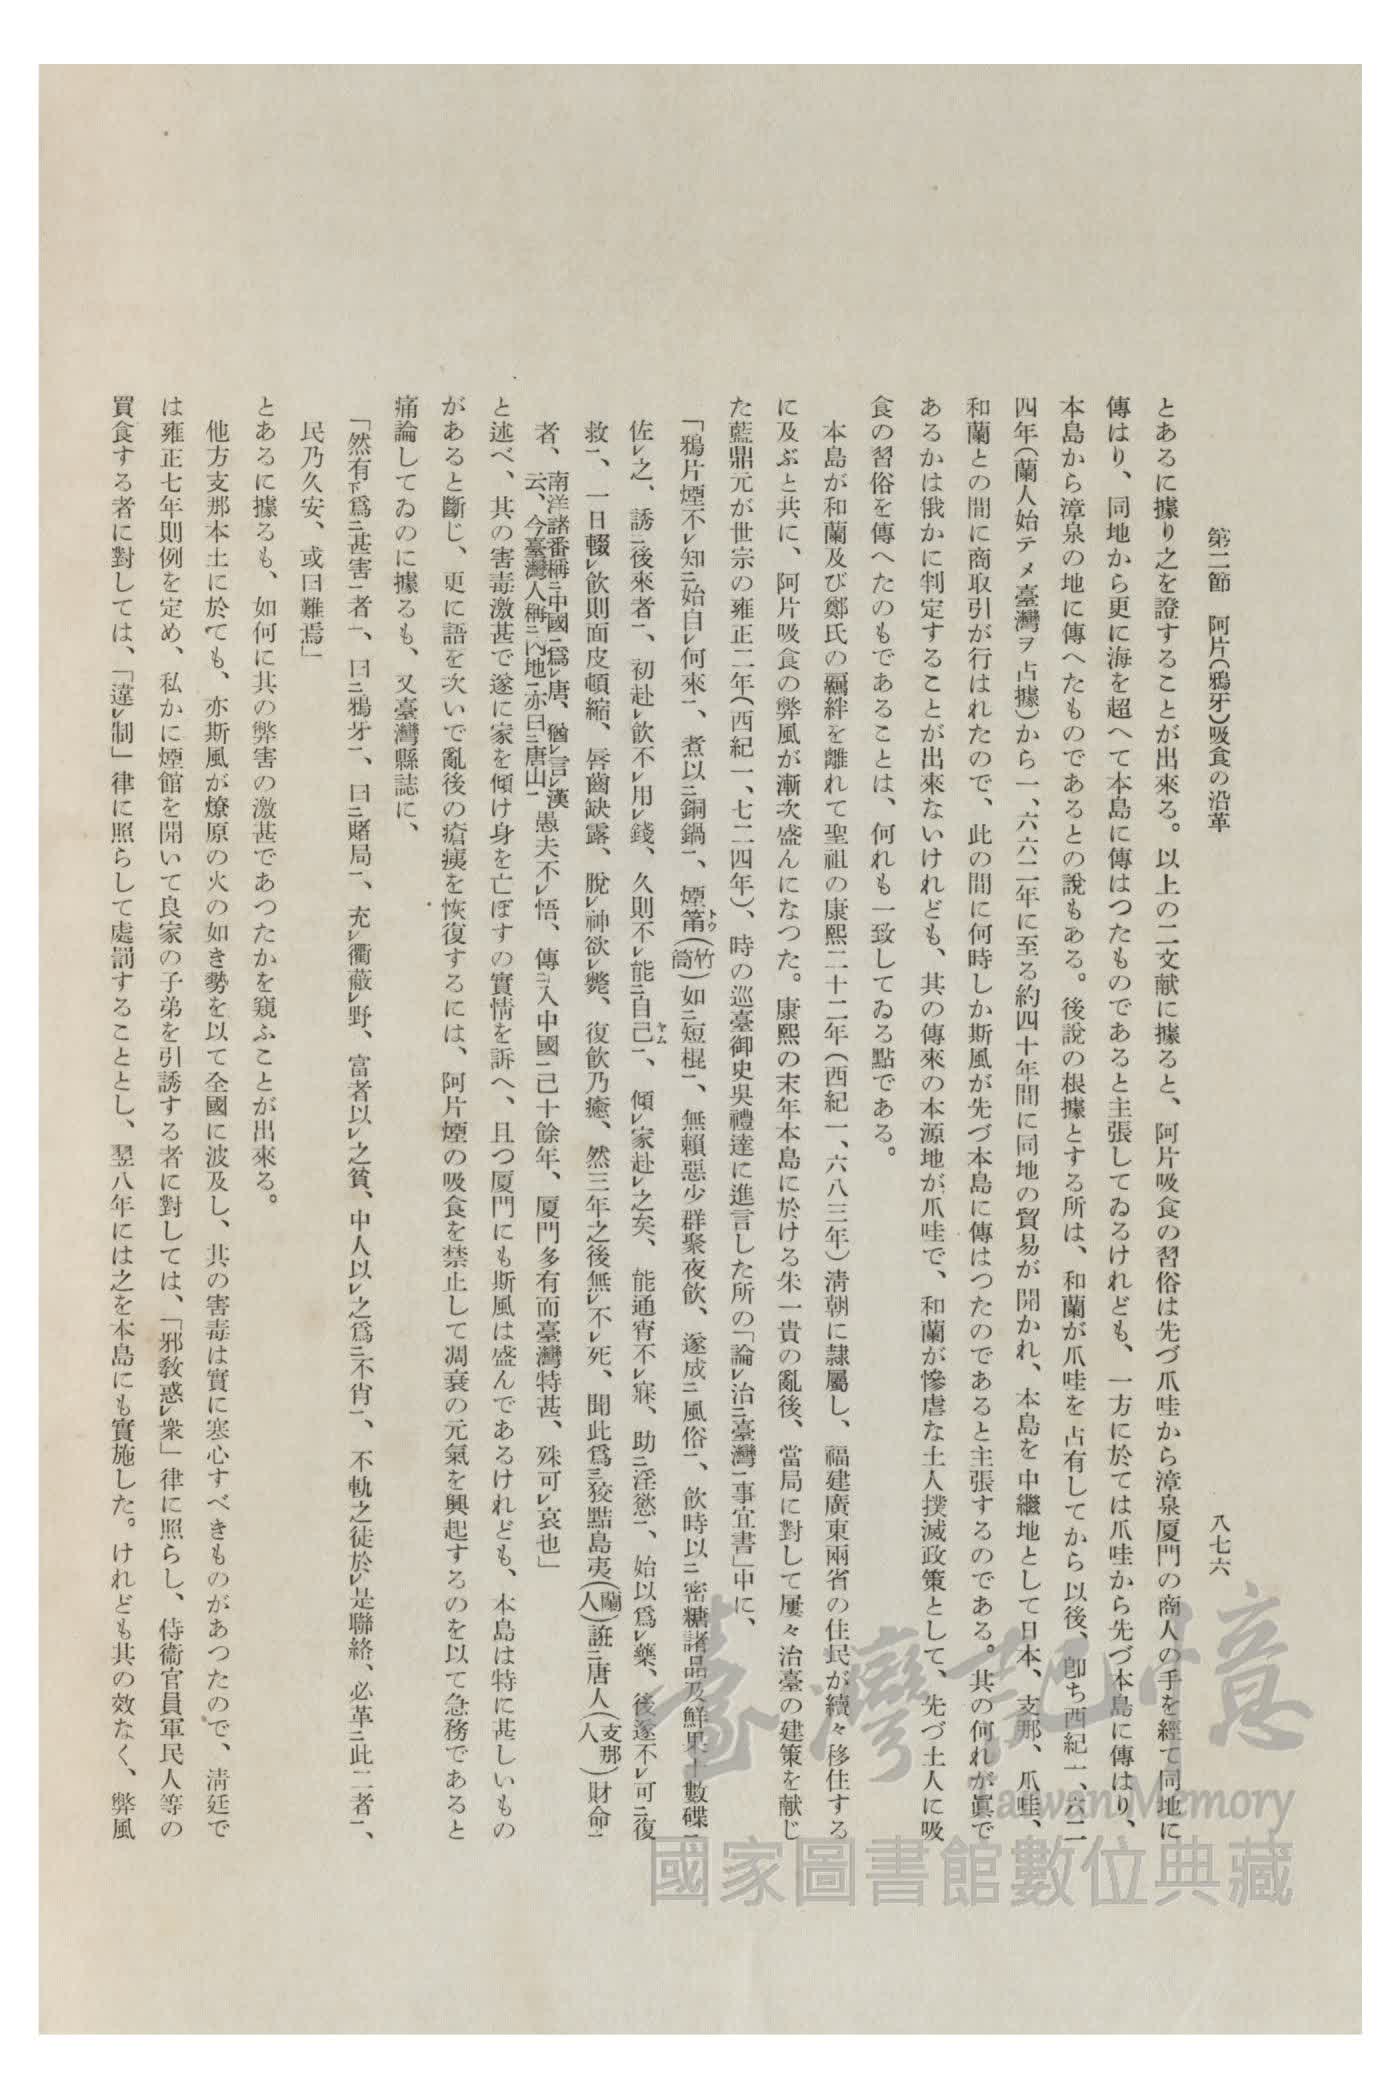 第二節　阿片(鴉牙)吸食の沿革　八七六
とあるに據り之を證することが出來る。以上の二文献に據ると、阿片吸食の習俗は先づ爪哇から漳泉厦門の商人の手を經て同地に
傳はり、同地から更に海を超へて本島に傳はつたものであると主張してゐるけれども、一方に於ては爪哇から先づ本島に傳はり、
本島から漳泉の地に傳へたものであるとの說もある。後說の根據とする所は、和蘭が爪哇を占有してから以後、卽ち西紀一、六二
四年(蘭人始テメ臺灣ヲ占據)から一、六六二年に至る約四十年間に同地の貿易が開かれ、本島を中繼地として日本、支那、爪哇、
和蘭との間に商取引が行はれたので、此の間に何時しか斯風が先づ本島に傳はつたのであると主張するのである。其の何れが眞で
あるかは俄かに判定することが出來ないけれども、其の傳來の本源地が爪哇で、和蘭が慘虐な土人撲滅政策として、先づ土人に吸
食の習俗を傳へたのもであることは、何れも一致してゐる點である。
本島が和蘭及び鄭氏の羈絆を離れて聖祖の康熙二十二年(西紀一、六八三年)淸朝に隷屬し、福建廣東兩省の住民が續々移住する
に及ぶと共に、阿片吸食の弊風が漸次盛んになつた。康熙の末年本島に於ける朱一貴の亂後、當局に對して屢々治臺の建策を献じ
た藍鼎元が世宗の雍正二年(西紀一、七二四年)、時の巡臺御史吳禮達に進言した所の「論レ治ニ臺灣一事宜書」中に、
「鴉片煙不レ知ニ始自レ何來一、煮以ニ銅鍋一、煙筩トウ(竹筒)如ニ短棍一、無賴惡少群聚夜飮、遂成ニ風俗一、飮時以ニ密糖諸品及鮮果十數碟一
佐レ之、誘ニ後來者一、初赴レ飮不レ用レ錢、久則不レ能ニ自己ヤム一、傾レ家赴レ之矣、能通宵不レ寐、助ニ淫慾一、始以爲レ藥、後遂不レ可ニ復
救一、一日輟レ飮則面皮頓縮、唇齒缺露、脫レ神欲レ斃、復飮乃癒、然三年之後無レ不レ死、聞此爲三狡黠島夷(蘭人)誑ニ唐人(支那人)財命一
者、南洋諸番稱ニ中國一爲レ唐、猶レ言レ漢云、今臺灣人稱ニ內地一亦曰ニ唐山一愚夫不レ悟、傳ニ入中國一己十餘年、厦門多有而臺灣特甚、殊可レ哀也」
と述べ、其の害毒激甚で遂に家を傾け身を亡ぼすの實情を訴へ、且つ厦門にも斯風は盛んであるけれども、本島は特に甚しいもの
があると斷じ、更に語を次いで亂後の瘡痍を恢復するには、阿片煙の吸食を禁止して凋衰の元氣を興起するのを以て急務であると
痛論してゐのに據るも、又臺灣縣誌に、
「然有下爲ニ甚害一者一、曰ニ鴉牙一、曰ニ賭局一、充レ衢蔽レ野、富者以レ之貧、中人以レ之爲ニ不肖一、不軌之徒於レ是聯絡、必革ニ此二者一、
民乃久安、或曰難焉」
とあるに據るも、如何に其の弊害の激甚であつたかを窺ふことが出來る。
他方支那本土に於ても、亦斯風が燎原の火の如き勢を以て全國に波及し、其の害毒は實に寒心すべきものがあつたので、淸廷で
は雍正七年則例を定め、私かに煙館を開いて良家の子弟を引誘する者に對しては、「邪敎惑レ衆」律に照らし、侍衞官員軍民人等の
買食する者に對しては、「違レ制」律に照らして處罰することとし、翌八年には之を本島にも實施した。けれども其の效なく、弊風
臺灣記憶
Taiwan Memory
國家圖書館數位典藏